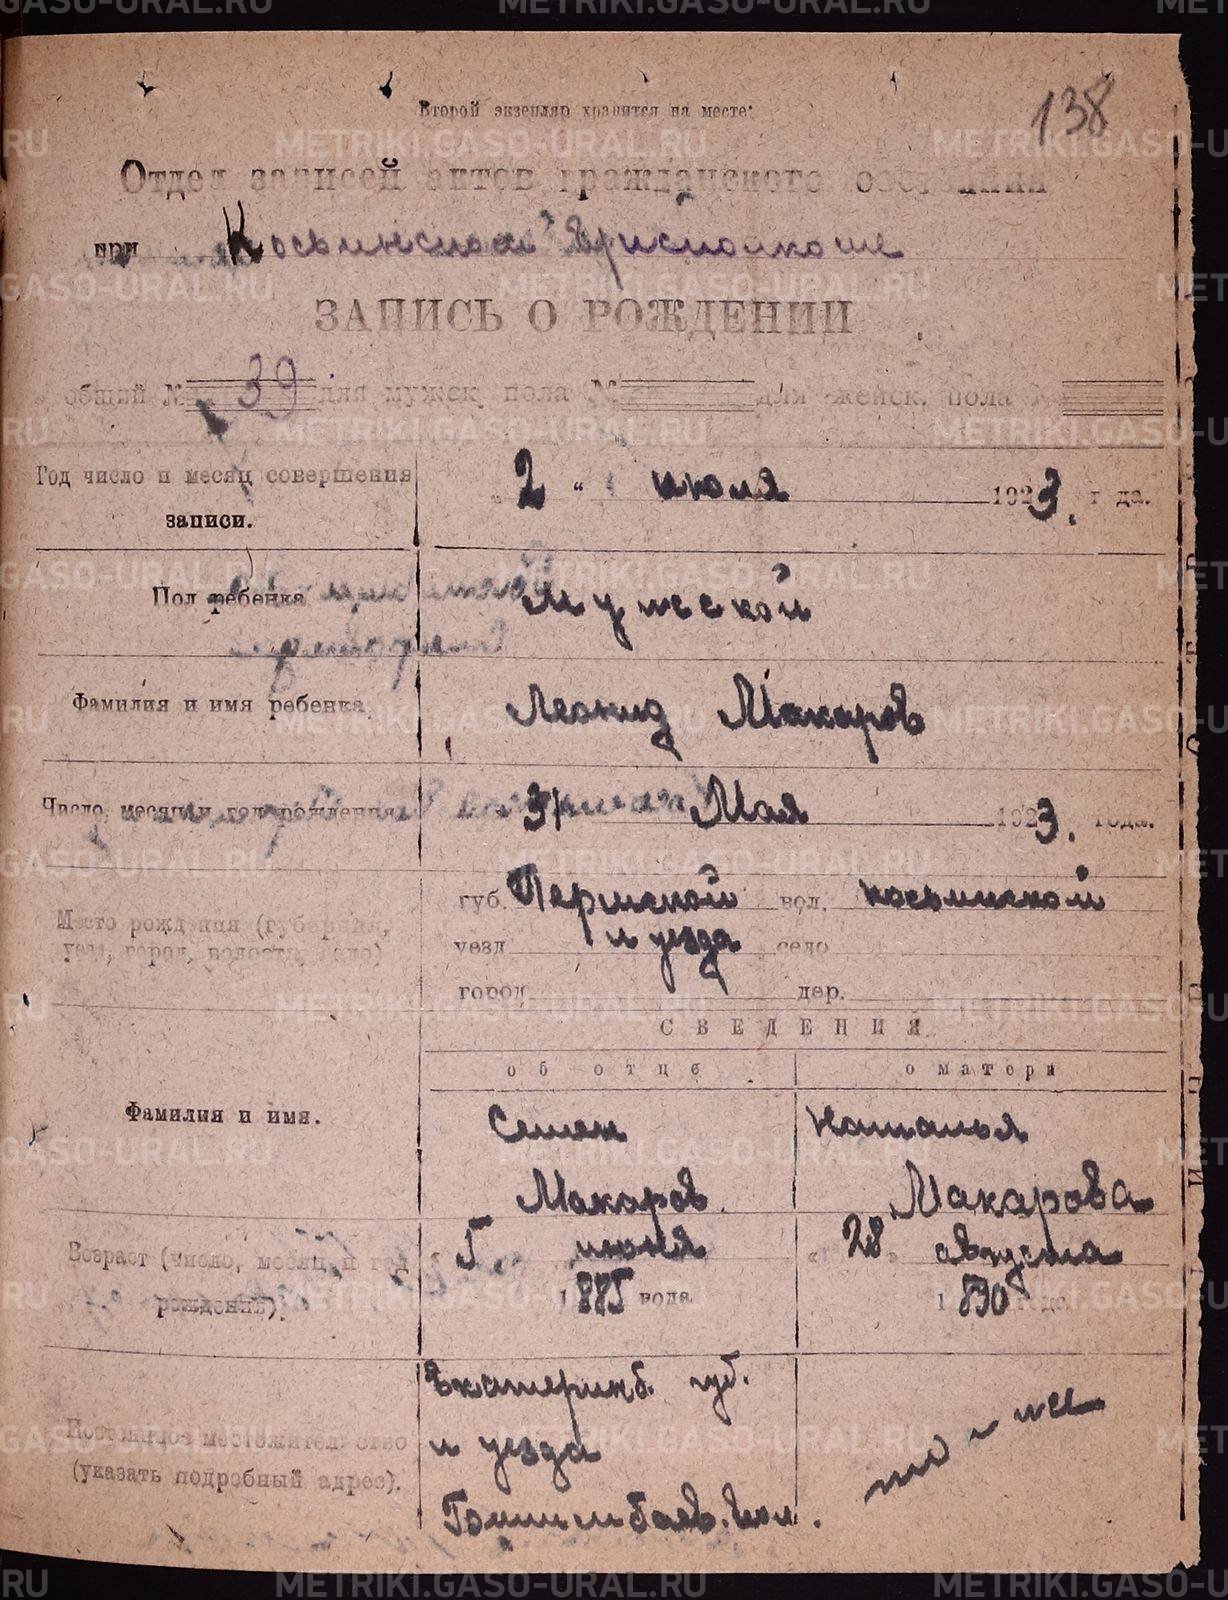 138
Второй экземпляр хранится на месте:
Отдел записей актов гражданского состояния
при Косьинском Врисполкоме
ЗАПИСЬ О РОЖДЕНИИ
общий № 39 для мужск. пола № для женск. пола №
Год число и месяц совершения записи. „2“ июля 1923. года.
Пол ребенка мужской
Фамилия и имя ребенка Леонид Макаров
Число, месяц и год рождения 31 Мая 1923. года.
Место рождения (губерния, уезд, город, волость, село)
губ. Пермской вол. косьинской
уезд и уезда село
город дер.
СВЕДЕНИЯ
об отце о матери
Фамилия и имя.
Семен Наталья
Макаров Макарова
Возраст (число, месяц и год рождения).
5 июня „28 августа
1885 года 1890 года
Постоянное местожительство (указать подробный адрес).
Екатеринб. губ.
и уезда то и же
METRIKI.GASO-URAL.RU